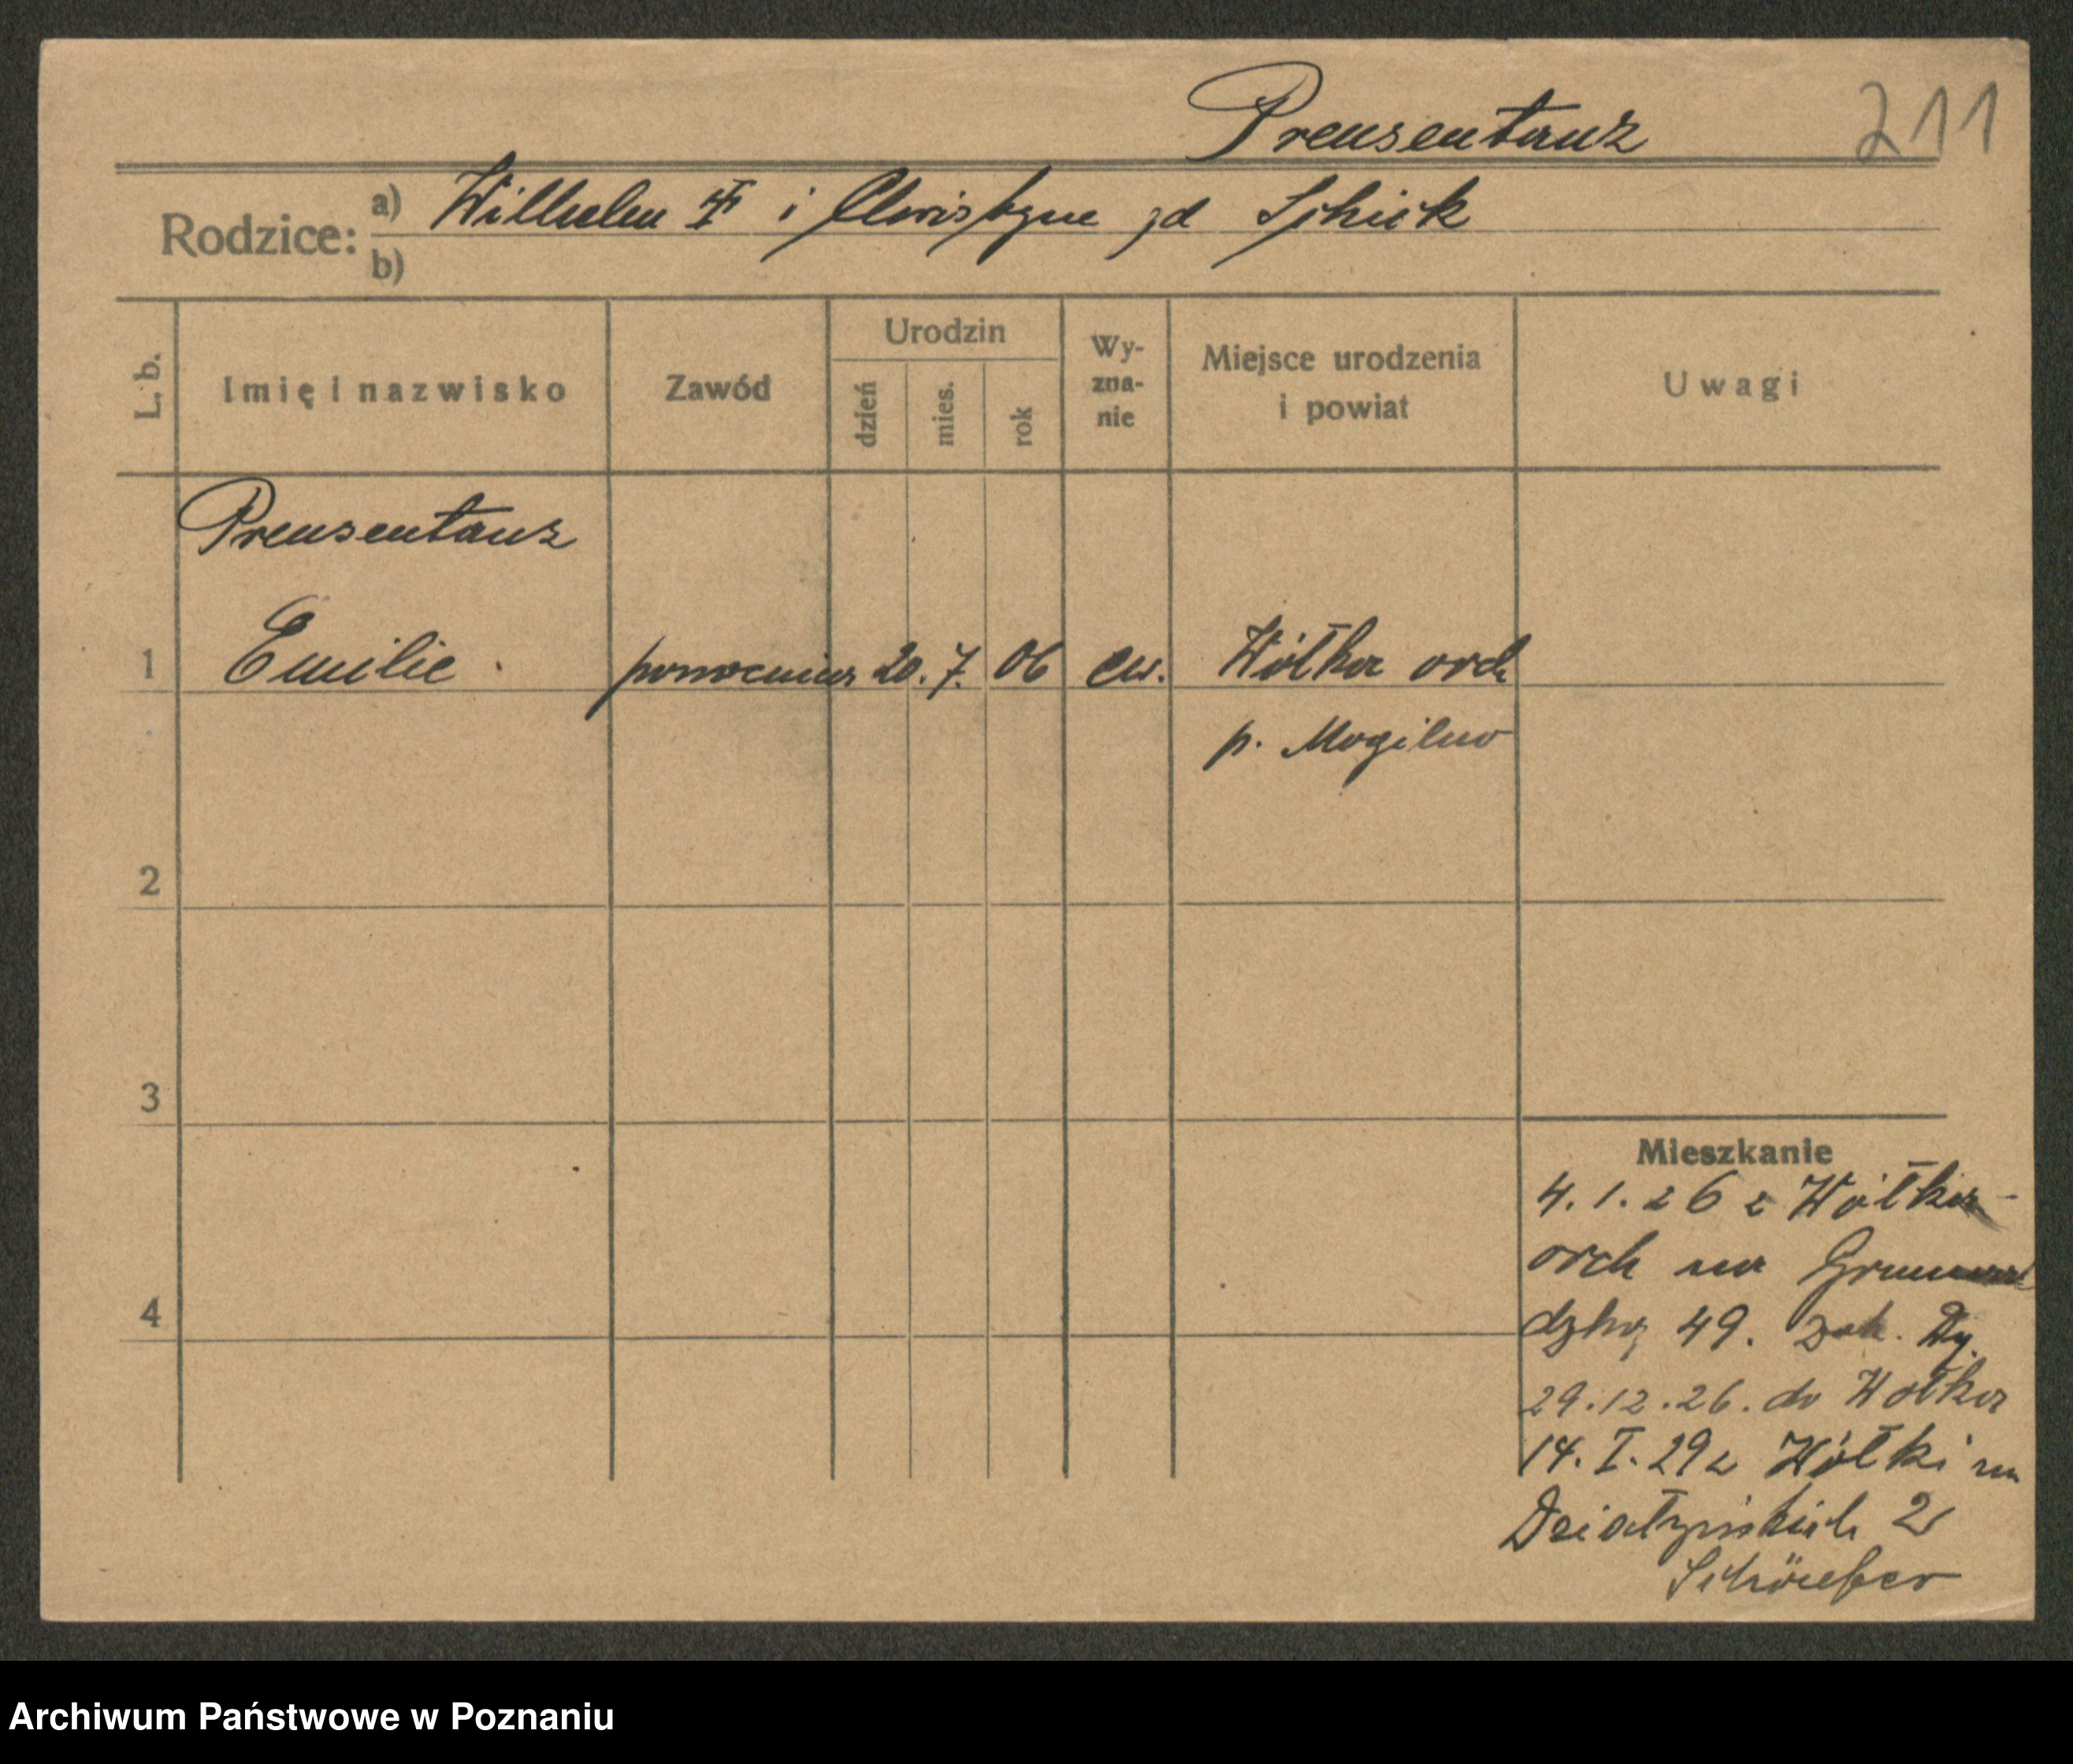 Preusentanz 211
Rodzice: a) Wilhelm i Christyne zd Schick
b)
L. b. Imię i nazwisko Zawód Urodzin dzień mies. rok Wy-zna-nie Miejsce urodzenia i powiat Uwagi
Preusentanz
1 Emilie 20. 7. 06 ew. Wólka orch
p. Mogilno
2
3
4
Mieszkanie
4.1.26 z Wólka-
orch na
49. Dg.
29.12.26. do Wólka
14.I.29 z Wólki na
Działyńskich 2
Archiwum Państwowe w Poznaniu